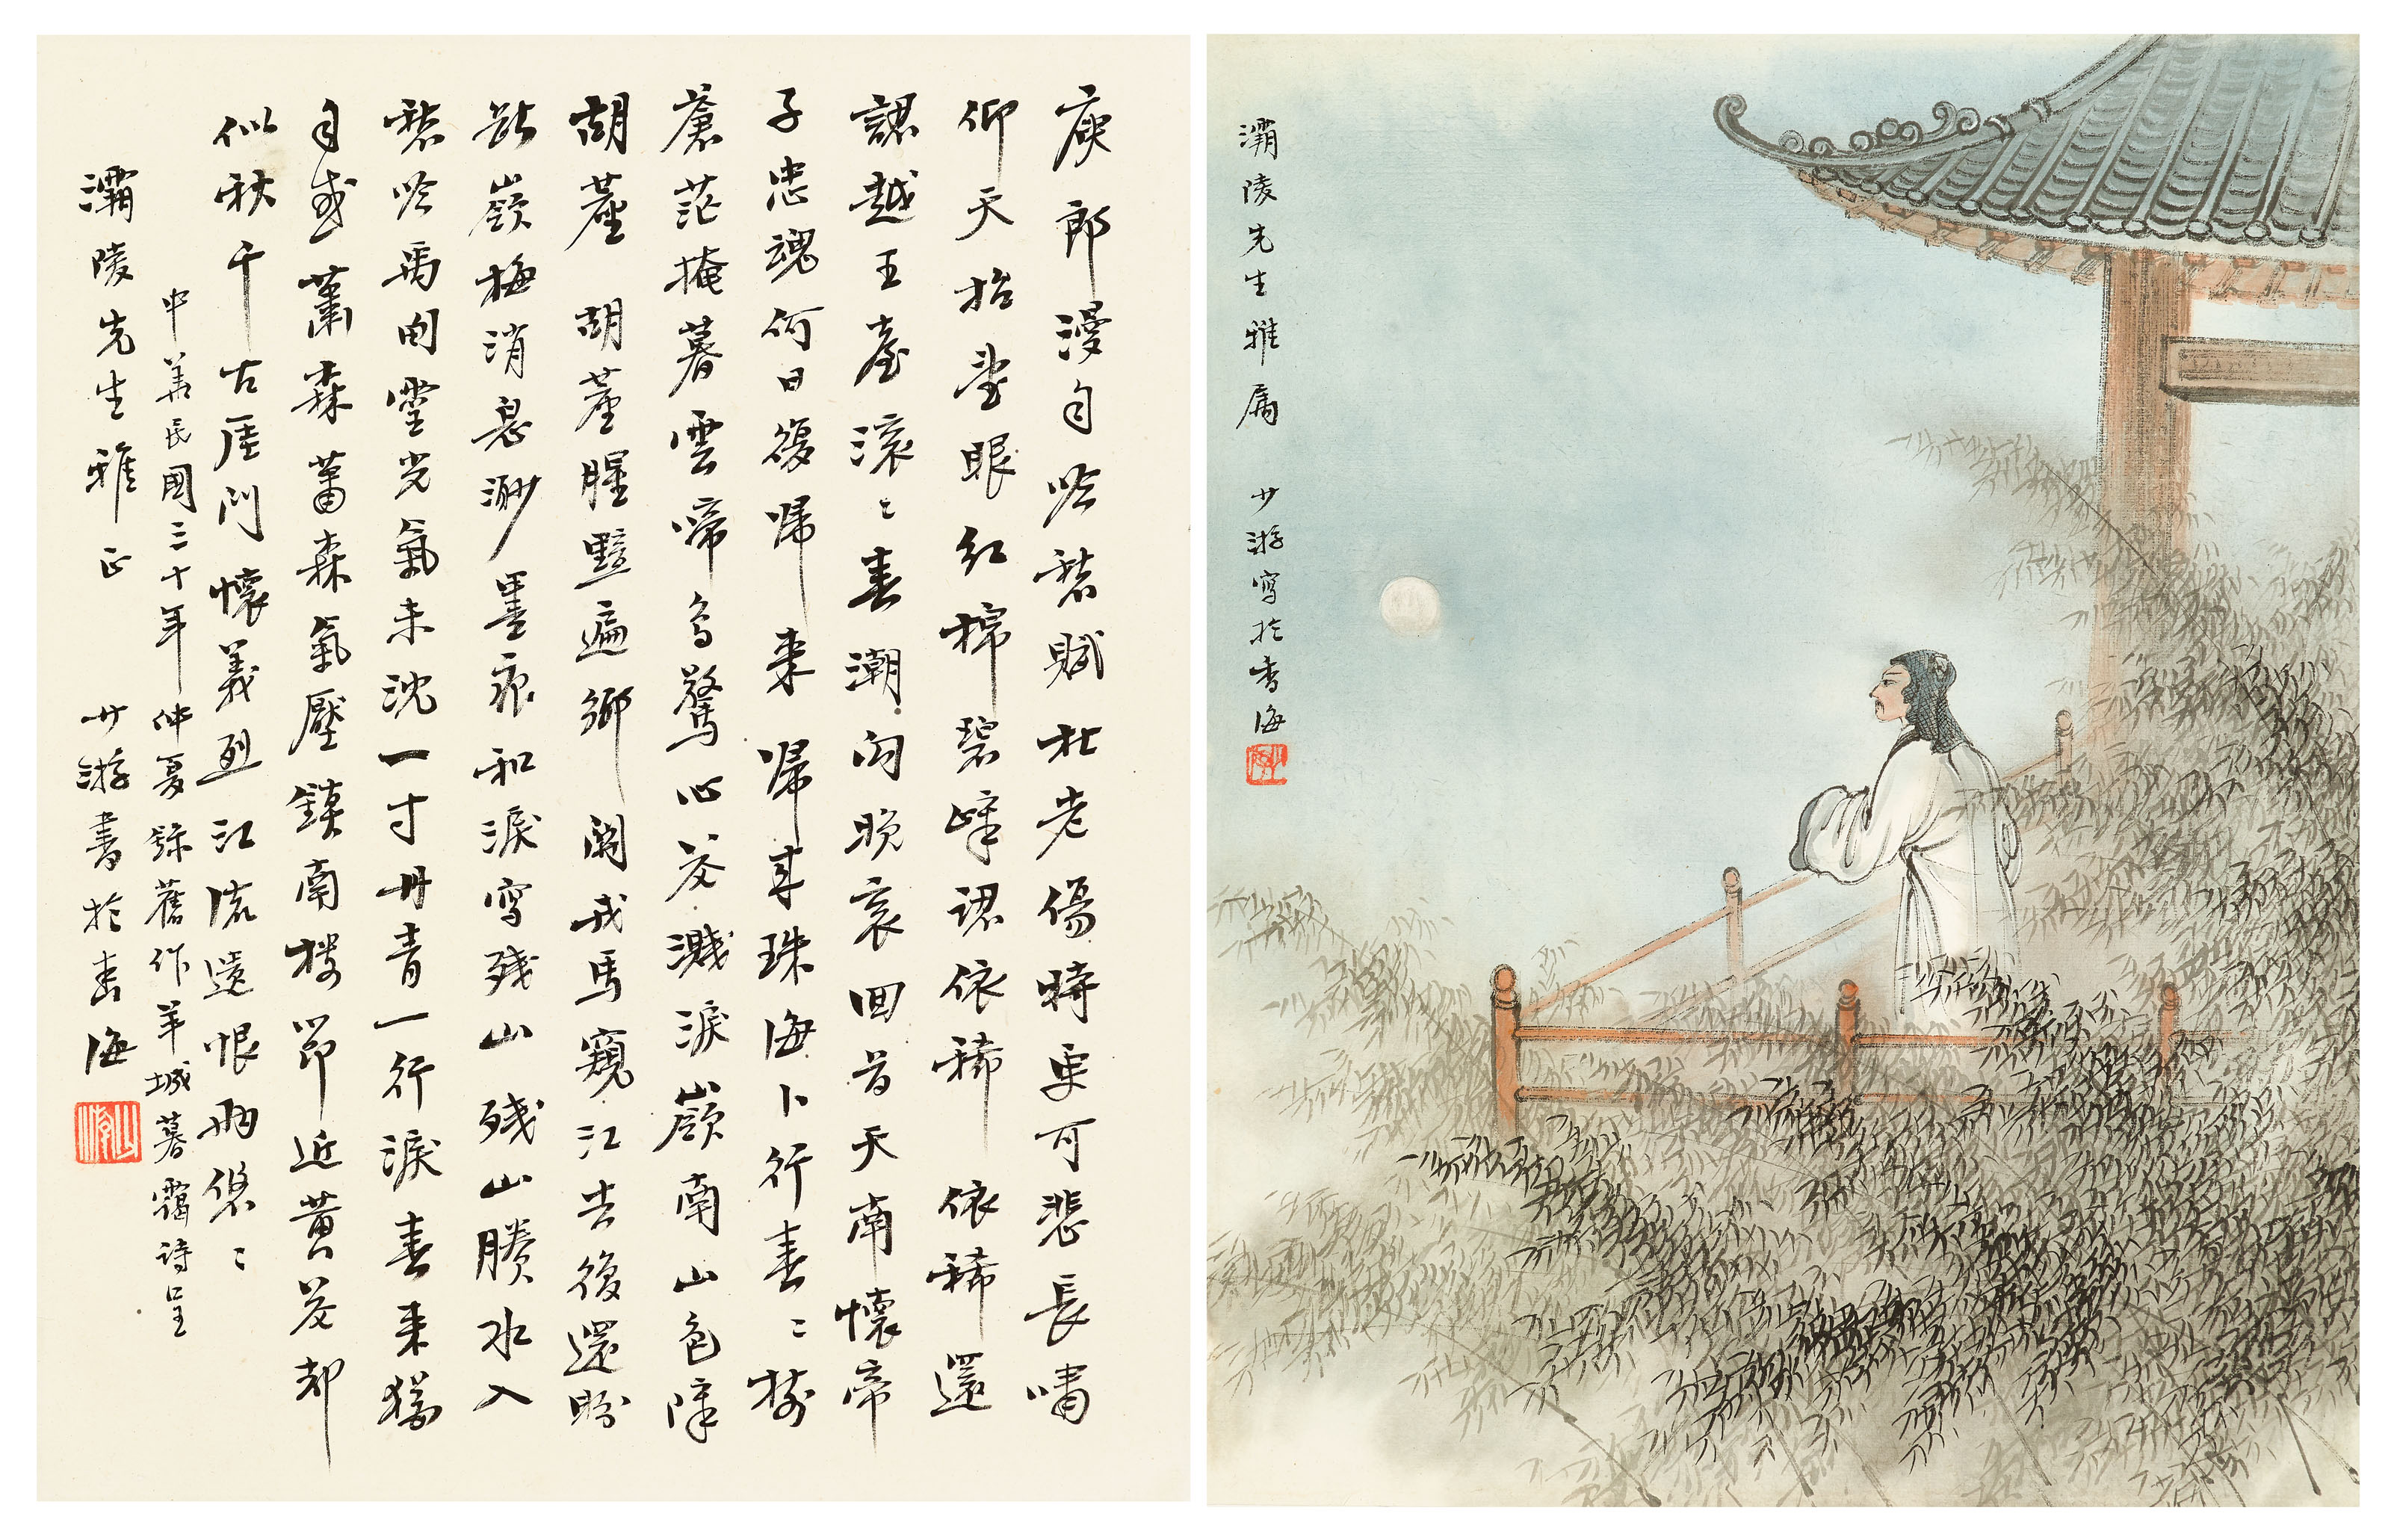 灞陵先生雅屬 少游寫於香海
庾郎漫自吟愁賦杜老傷時更可悲長嘯
仰天抬望眼紅棉碧嶂認依稀 依稀還
認越王臺滾〻春潮向晚哀回首天南懷帝
子忠魂何日復歸來 歸來珠海卜行春〻樹
蒼茫掩暮雲啼鳥驚心花濺淚嶺南山色障
胡塵 胡塵腥黷遍鄉關戎馬窺江去後還盼
斷嶺梅消息渺墨痕和淚寫殘山 殘山賸水入
愁吟禹甸靈光氣未沈一寸丹青一行淚春來猶
自感蕭森 蕭森氣壓鎮南樓節近黃花却
似秋千古厓門懷義烈江流遺恨兩悠〻
中華民國三十年仲夏錄舊作羊城暮靄詩呈
灞陵先生雅正 少游書於香海